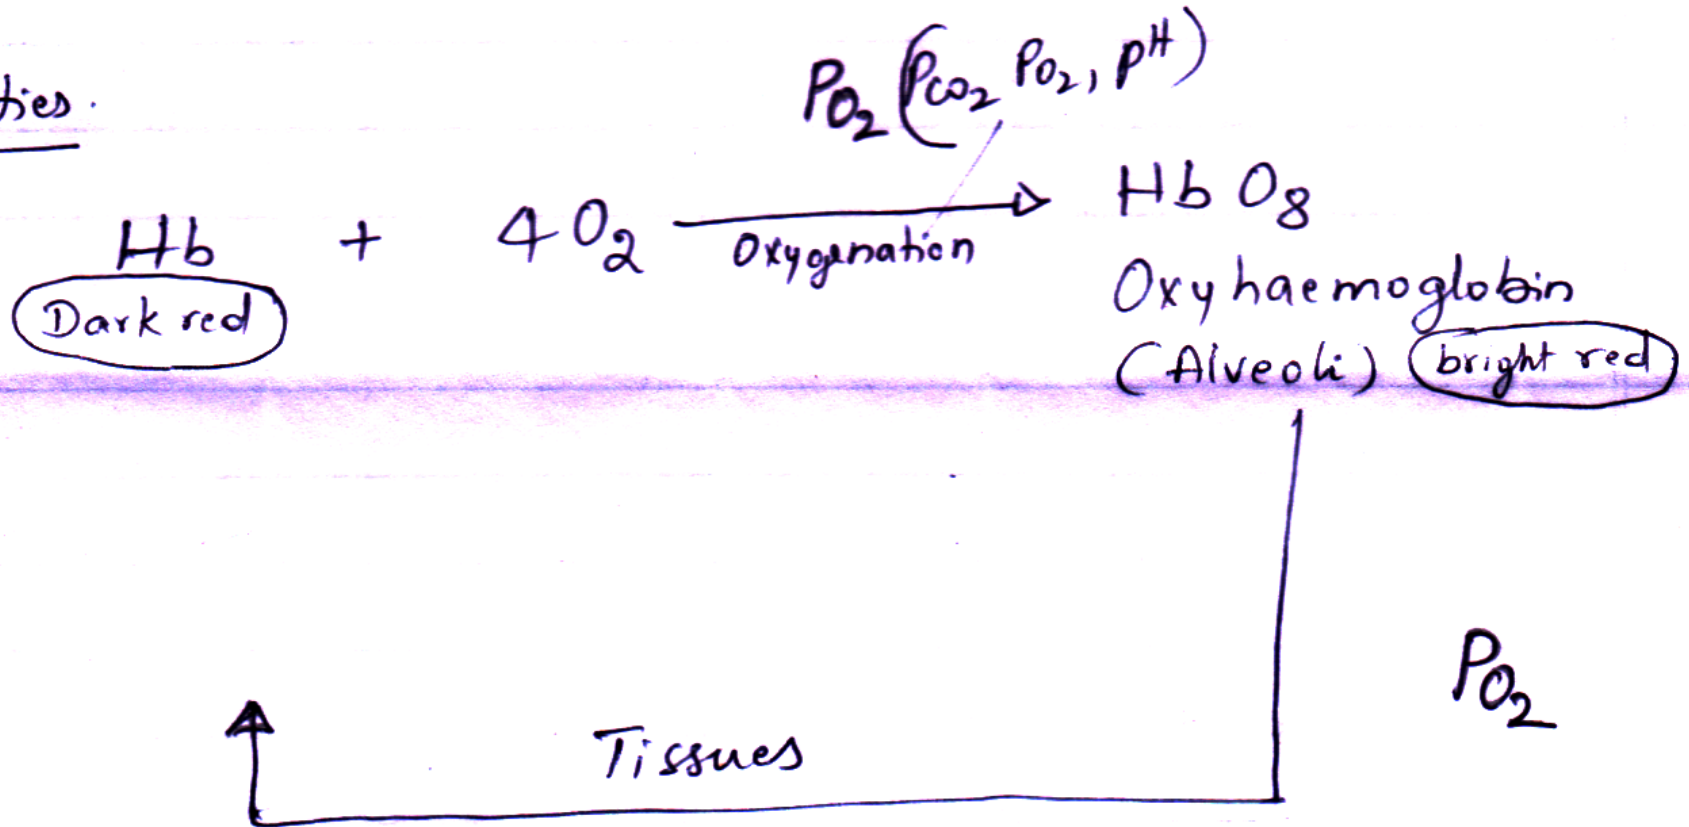 PO₂ (PCO₂ PO₂, pH)
ties.
Hb + 4O₂ → HbO₈
Oxygenation
Dark red
Oxyhaemoglobin
(Alveoli) bright red
PO₂
Tissues